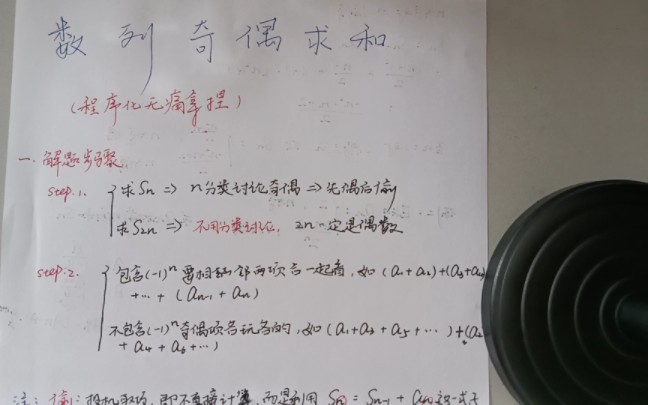 数列奇偶求和
(程序化无痛拿捏)
一.解题步骤
step.1. 求Sn => n分类讨论奇偶 => 先偶后偷
求S2n => 不用分类讨论, 2n一定是偶数
step.2. 包含(-1)^n要相邻两项合一起看,如(a1+a2)+(a3+a4)
+…+(an-1+an)
不包含(-1)^n奇偶项各玩各的,如(a1+a3+a5+…)+(a2
+a4+a6+…)
注: 偷: 投机取巧,即不直接计算,而是利用Sn=Sn-1+an这一式子